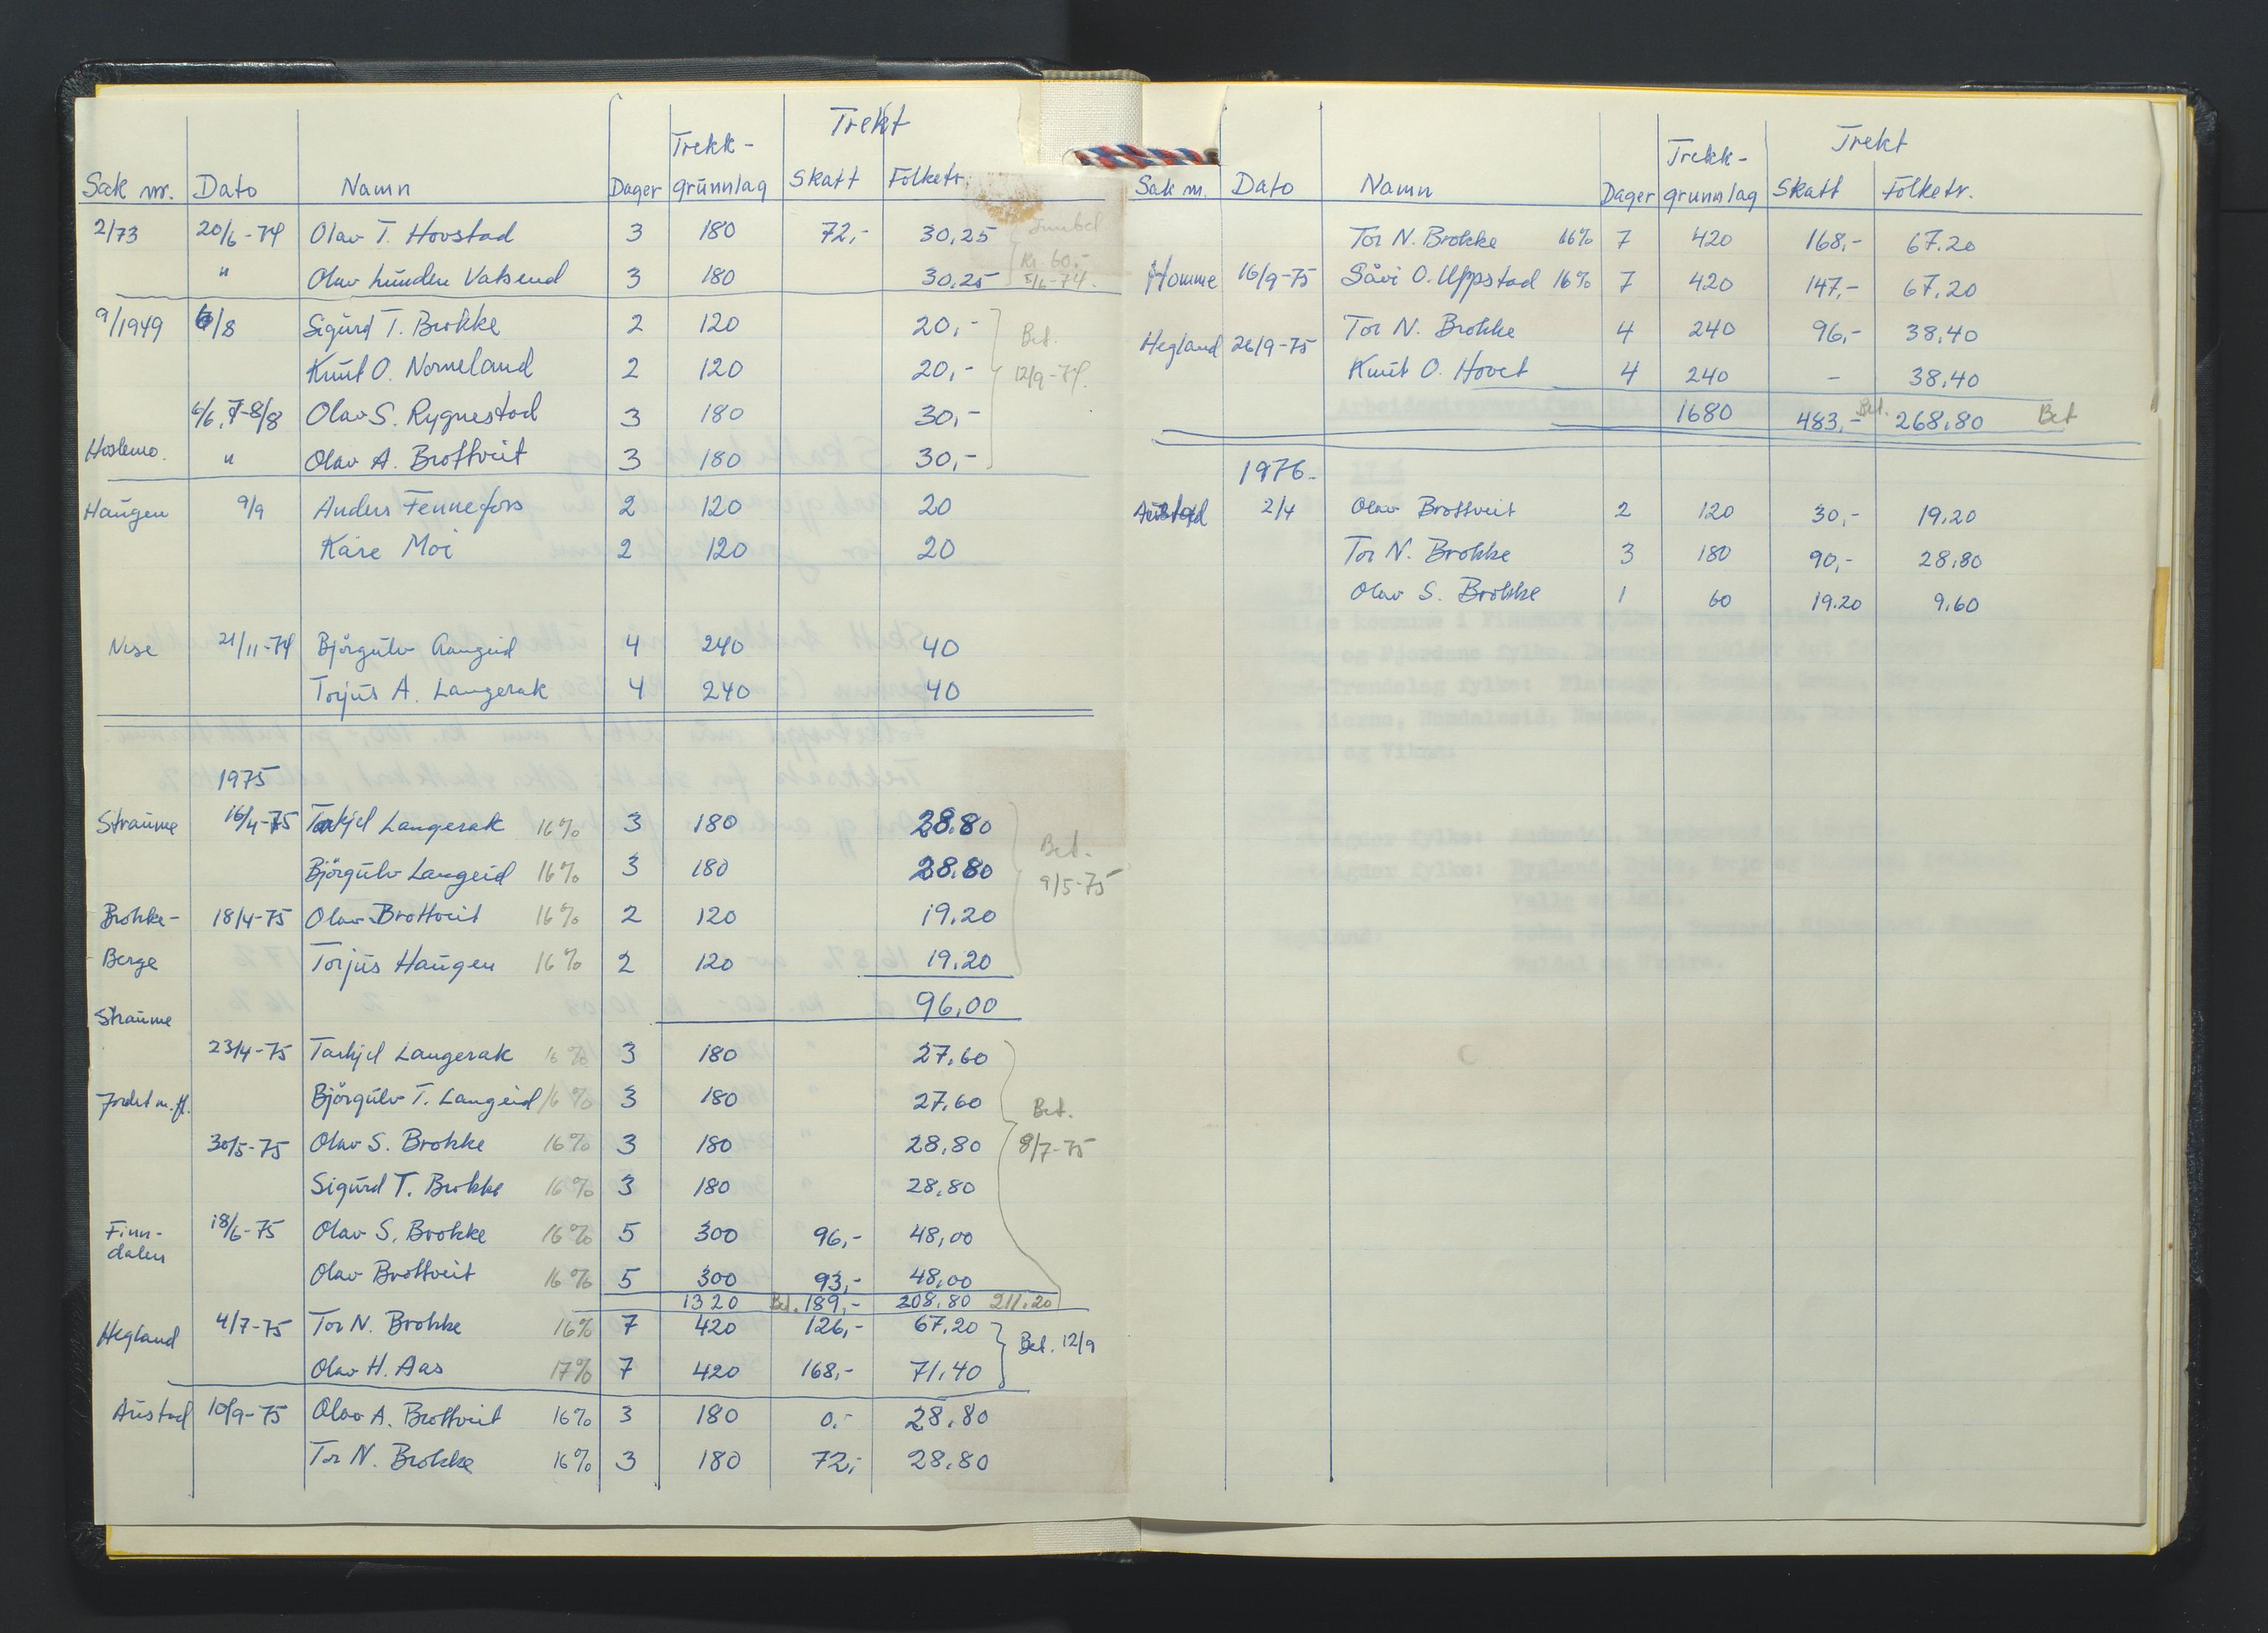 Trekt
Trekk-
Sak nr. Dato Namn Dager grunnlag Skatt Folketr.
2/73 20/6-74 Olav T. Hovstad 3 180 72,- 30,25
" Olav Lunden Valsend 3 180 30,25 Kr. 60.- 5/6-74.
9/1949 6/8 Sigurd T. Brokke 2 120 20,- Bet.
Knut O. Nomeland 2 120 20,- 12/9-74.
6/6, 7-8/8 Olav S. Rygnestad 3 180 30,-
Hoslemo. " Olav A. Brottveit 3 180 30,-
Haugen 9/9 Anders Fennefoss 2 120 20
Kåre Moi 2 120 20
Nese 21/11-74 Bjørgulv Langeid 4 240 40
Torjus A. Langerak 4 240 40
1975
Straume 16/4-75 Tarkjel Langerak 16% 3 180 28.80
Bjørgulv Langeid 16% 3 180 28.80 Bet. 9/5-75
Brokke- 18/4-75 Olav Brottveit 16% 2 120 19.20
Berge Torjus Haugen 16% 2 120 19.20
96,00
Straume
23/4-75 Tarkjel Langerak 16% 3 180 27,60
Jordet m.fl. Bjørgulv T. Langeid 16% 3 180 27,60 Bet.
30/5-75 Olav S. Brokke 16% 3 180 28,80 8/7-75
Sigurd T. Brokke 16% 3 180 28,80
Finn- 18/6-75 Olav S. Brokke 16% 5 300 96,- 48,00
dalen
Olav Brottveit 16% 5 300 93,- 48,00
1320 Bet. 189,- 208.80 211.20
Hegland 4/7-75 Tor N. Brokke 16% 7 420 126,- 67,20 Bet. 12/9
Olav H. Aas 17% 7 420 168,- 71,40
Austad 10/9-75 Olav A. Brottveit 16% 3 180 0,- 28,80
Tor N. Brokke 16% 3 180 72,- 28.80
Trekt
Trekk-
Sak nr. Dato Namn Dager grunnlag Skatt Folketr.
Tor N. Brokke 16% 7 420 168,- 67.20
Homme 16/9-75 Såvi O. Uppstad 16% 7 420 147,- 67,20
Hegland 26/9-75 Tor N. Brokke 4 240 96,- 38,40
Knut O. Hovet 4 240 - 38,40
1680 483,- Bet. 268,80 Bet
1976.
Austad 2/4 Olav Brottveit 2 120 30,- 19.20
Tor N. Brokke 3 180 90,- 28.80
Olav S. Brokke 1 60 19.20 9.60